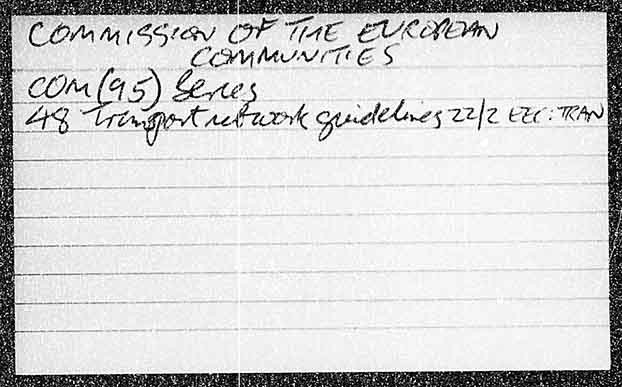 COMMISSION OF THE EUROPEAN
COMMUNITIES
COM(95) Series
48 Transport network guidelines 22/2 EEC: TRAN